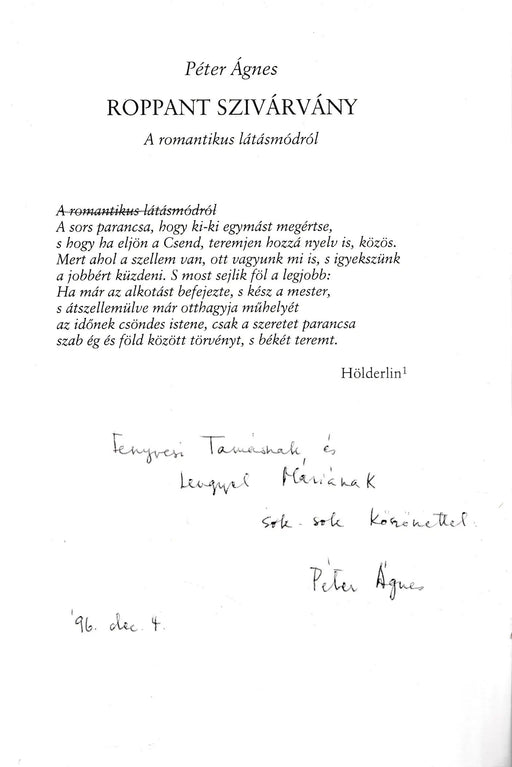 Péter Ágnes
ROPPANT SZIVÁRVÁNY
A romantikus látásmódról
A romantikus látásmódról
A sors parancsa, hogy ki-ki egymást megértse,
s hogy ha eljön a Csend, teremjen hozzá nyelv is, közös.
Mert ahol a szellem van, ott vagyunk mi is, s igyekszünk
a jobbért küzdeni. S most sejlik föl a legjobb:
Ha már az alkotást befejezte, s kész a mester,
s átszellemülve már otthagyja műhelyét
az időnek csöndes istene, csak a szeretet parancsa
szab ég és föld között törvényt, s békét teremt.
Hölderlin¹
Fenyvesi Tamásnak és
Lengyel Máriának
sok-sok köszönettel
Péter Ágnes
'96. dec. 4.